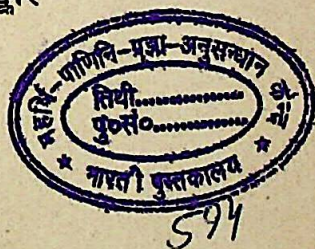 महर्षि-पाणिनि-प्रज्ञा-अनुसन्धान
तिथी..................
पु०सं०..................
★ भारती पुस्तकालय ★
594